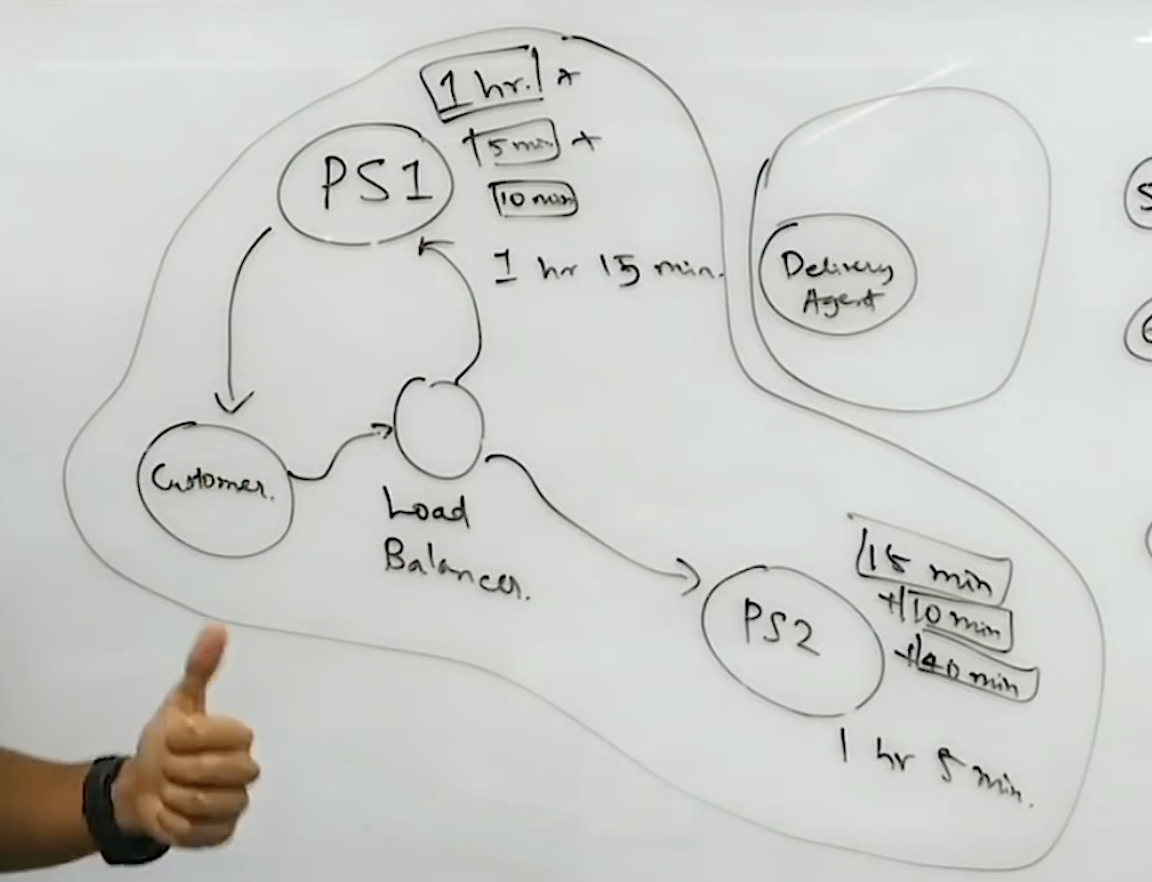 1 hr. +
+ 5 min +
10 min
PS1
1 hr 15 min.
Delivery
Agent
Customer.
Load
Balancer.
15 min
+ 10 min
+ 40 min
PS2
1 hr 5 min.